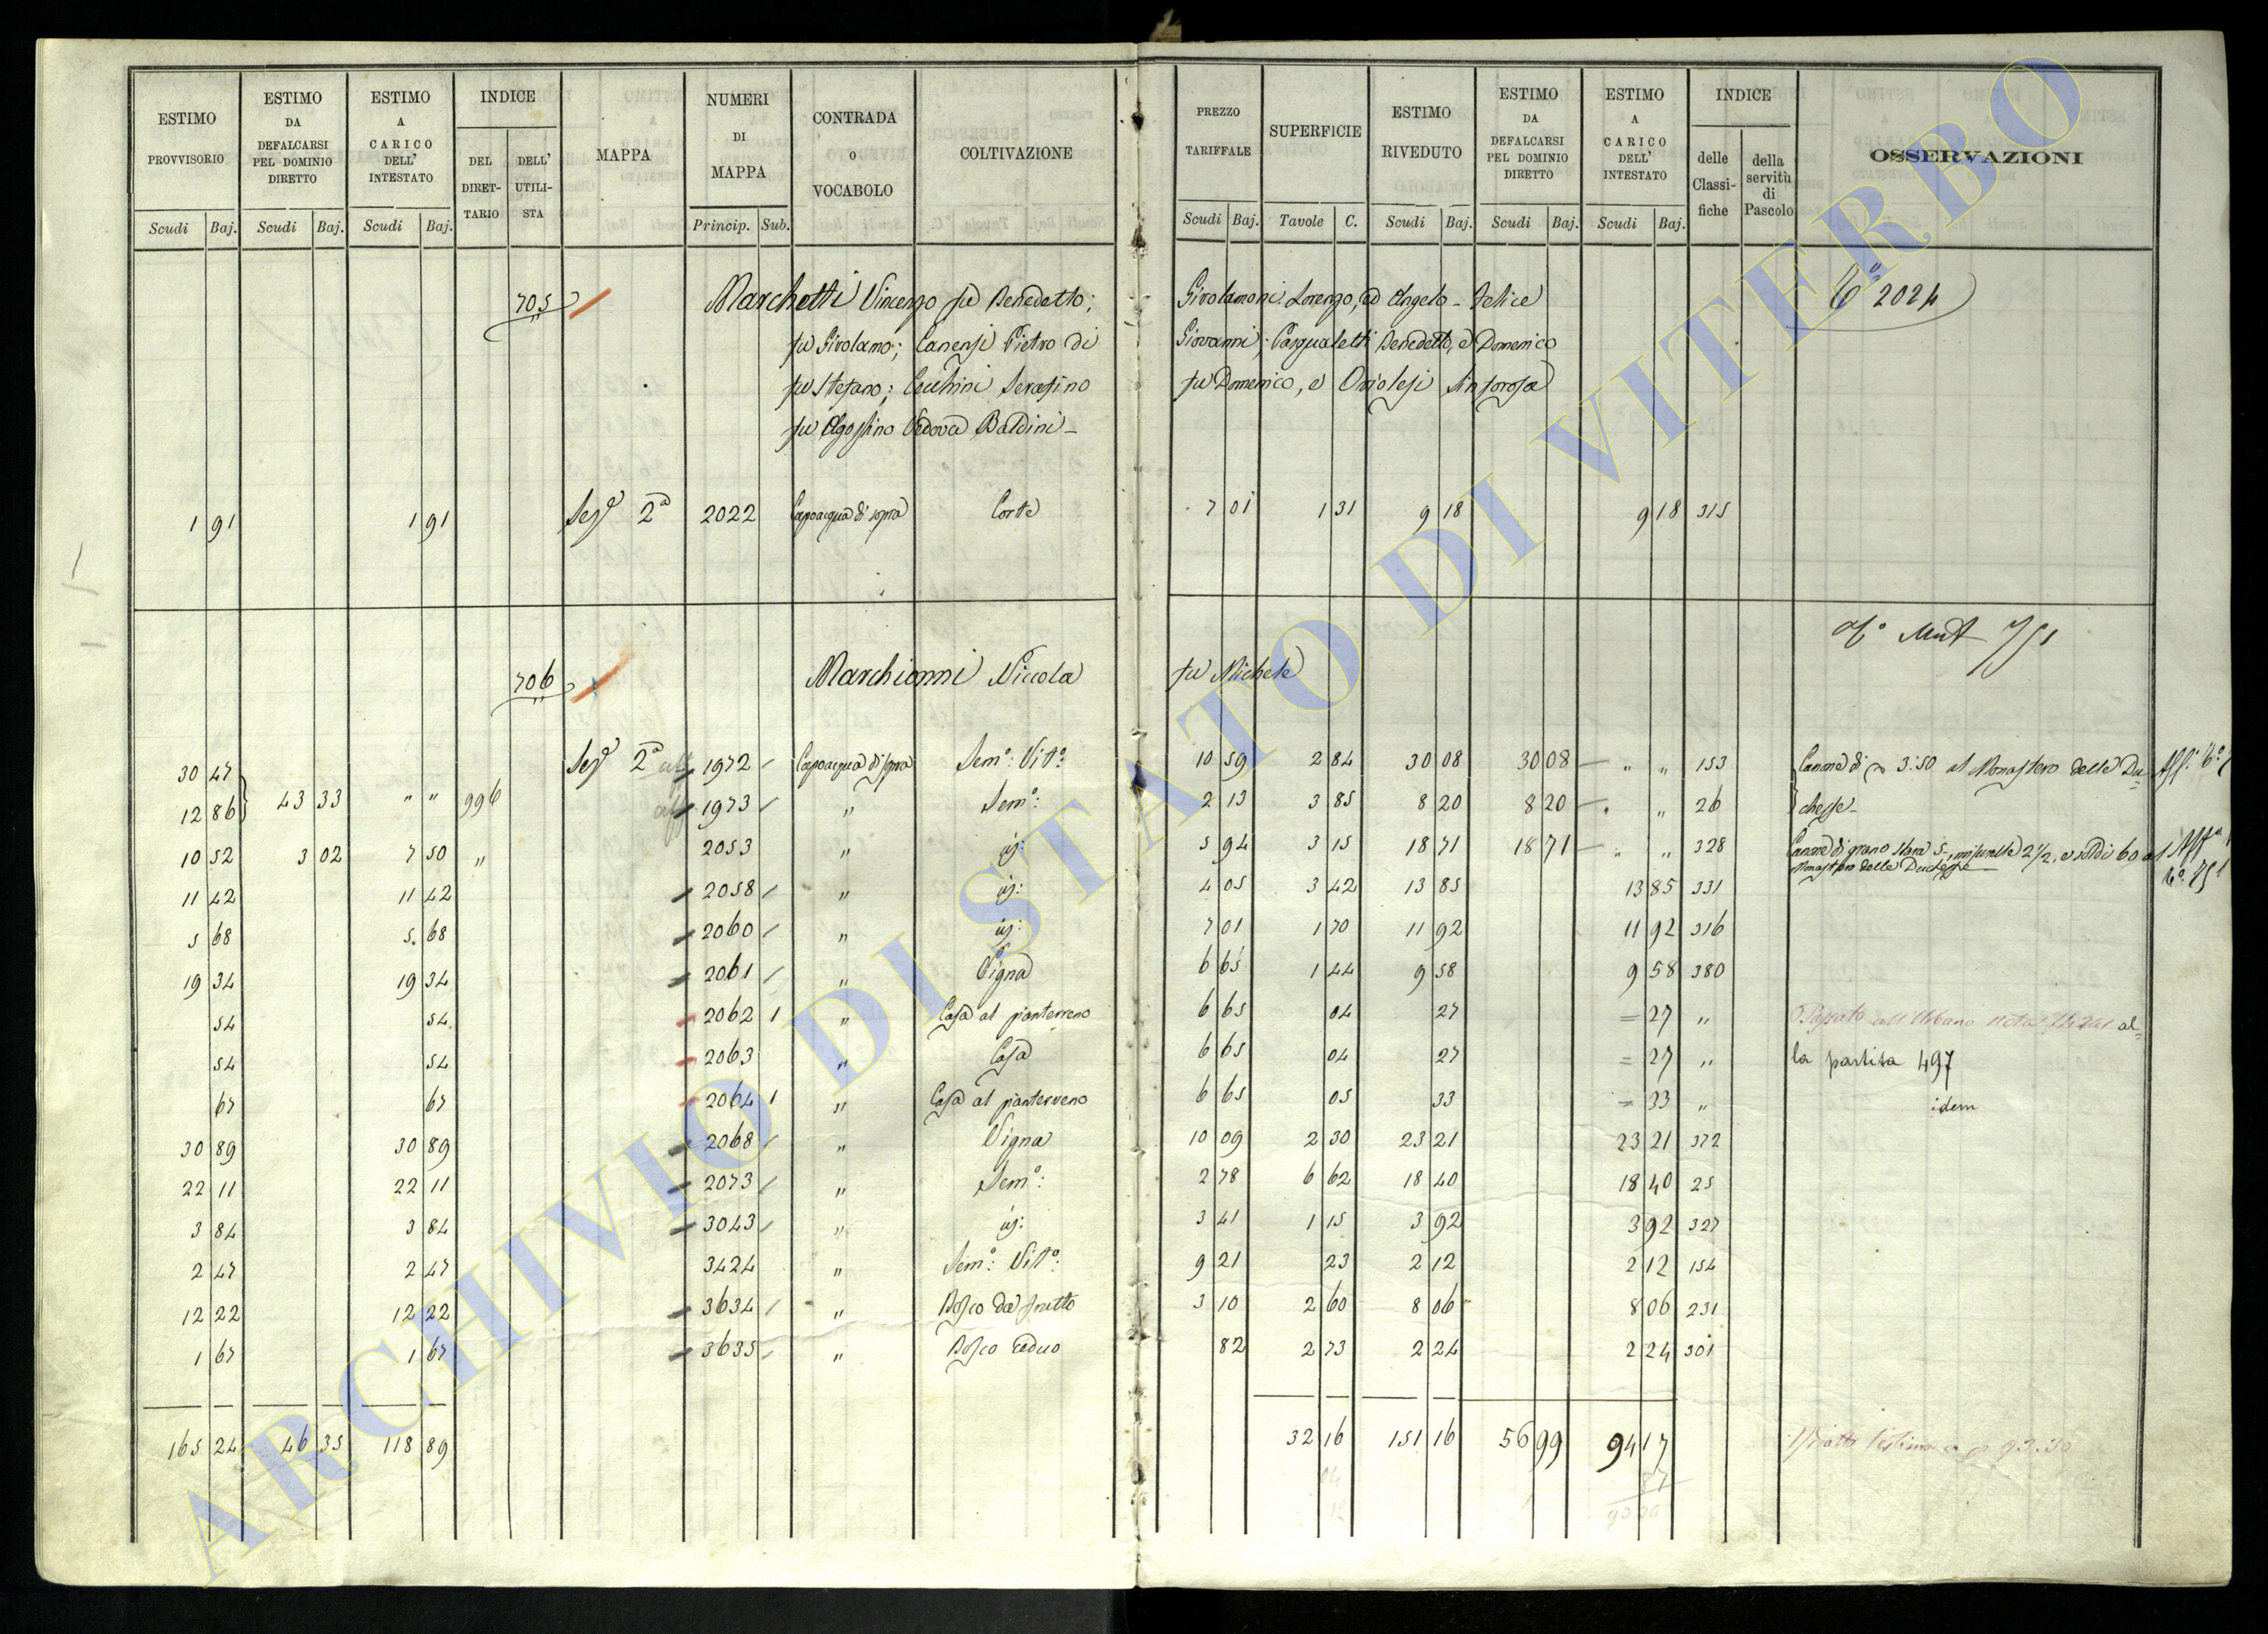 ESTIMO PROVVISORIO Scudi Baj. ESTIMO DA DEFALCARSI PEL DOMINIO DIRETTO Scudi Baj. ESTIMO A CARICO DELL' INTESTATO Scudi Baj. INDICE DEL DIRET- TARIO DELL' UTILI- STA MAPPA NUMERI DI MAPPA Princip. Sub. CONTRADA O VOCABOLO COLTIVAZIONE PREZZO TARIFFALE Scudi Baj. SUPERFICIE Tavole C. ESTIMO RIVEDUTO Scudi Baj. ESTIMO DA DEFALCARSI PEL DOMINIO DIRETTO Scudi Baj. ESTIMO A CARICO DELL' INTESTATO Scudi Baj. INDICE delle Classi- fiche della servitù di Pascolo OSSERVAZIONI
705 Marchetti Vincenzo fu Benedetto; Girolamoni Lorenzo, ed Angelo - Felice 2024
fu Girolamo; Canensi Pietro di Giovanni; Pasqualetti Benedetto, e Domenico
fu Stefano; Cecchini Serafino fu Domenico, e Oriolesi Sinforosa
fu Agostino Vedova Baldini -
1 91 1 91 Seg.e 2a 2022 Capoacqua di sopra Corte 7 01 1 31 9 18 9 18 315
Mut 751
706 Marchionni Niccola fu Michele
30 47 Seg.e 2a 1972 Capoacqua di sopra Sem.o: Vit.o: 10 59 2 84 30 08 30 08 " " 153 Canone di 3:50 al Monastero delle Du=
12 86 43 33 " " 996 1973 " Sem.o: 2 13 3 85 8 20 8 20 " " 26 chesse -
10 52 3 02 7 50 " 2053 " 5 94 3 15 18 71 18 71 " " 328 Canone di grano Stara 5, misurelle 2 1/2, e soldi 60 al Monastero delle Duchesse
11 42 11 42 2058 " 4 05 3 42 13 85 13 85 331
5 68 5 68 2060 " 7 01 1 70 11 92 11 92 316
19 34 19 34 2061 " Vigna 6 65 1 44 9 58 9 58 380
54 54 2062 1 " Casa al pianterreno 6 65 04 27 = 27 " Passato all'Urbano al=
54 54 2063 " Casa 6 65 04 27 = 27 " la partita 497
67 67 2064 1 " Casa al pianterreno 6 65 05 33 = 33 " idem
30 89 30 89 2068 " Vigna 10 09 2 30 23 21 23 21 372
22 11 22 11 2073 " Sem.o: 2 78 6 62 18 40 18 40 25
3 84 3 84 3043 " 3 41 1 15 3 92 3 92 327
2 47 2 47 3424 " Sem.o: Vit.o: 9 21 23 2 12 2 12 154
12 22 12 22 3634 " Bosco da frutto 3 10 2 60 8 06 8 06 231
1 67 1 67 3635 " Bosco ceduo 82 2 73 2 24 2 24 301
165 24 46 35 118 89 32 16 151 16 56 99 94 17 93:30
87
ARCHIVIO DI STATO DI VITERBO